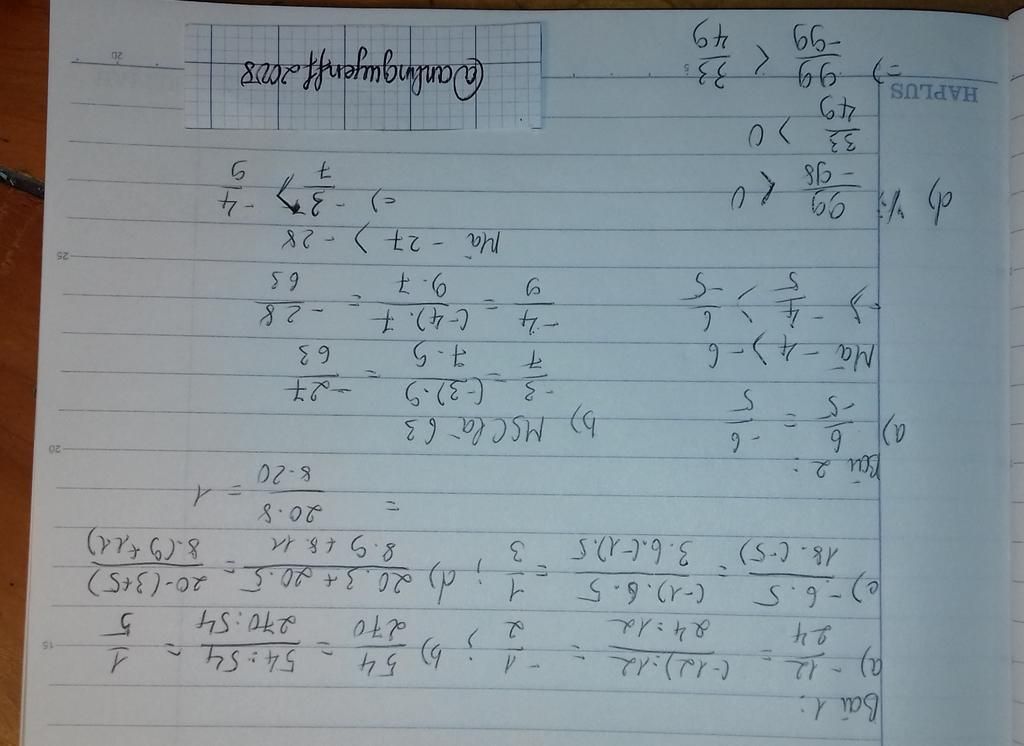 Bài 1:
a) -12/24 = (-12):12/24:12 = -1/2 ; b) 54/270 = 54:54/270:54 = 1/5
c) -6.5/18.(-5) = (-1).6.5/3.6.(-1).5 = 1/3 ; d) 20.3+20.5/8.9+8.11 = 20.(3+5)/8.(9+11)
= 20.8/8.20 = 1
Bài 2:
a) 6/-5 = -6/5
Mà -4 > -6
=> -4/5 > 6/-5
b) MSC là 63
-3/7 = (-3).9/7.9 = -27/63
-4/9 = (-4).7/9.7 = -28/63
Mà -27 > -28
=) -3/7 > -4/9
d) Vì: 99/-98 < 0
33/49 > 0
=) 99/-99 < 33/49
@anhnguyenff2008
HAPLUS
15
20
25
20
5